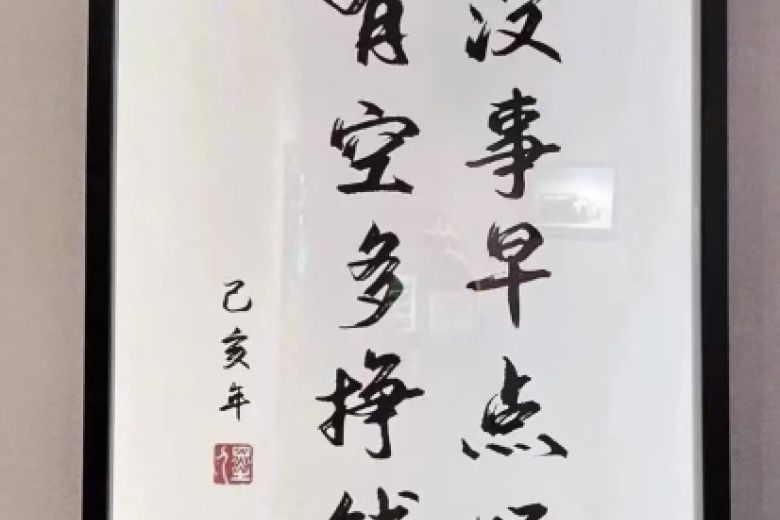 没事早点
有空多挣
己亥年